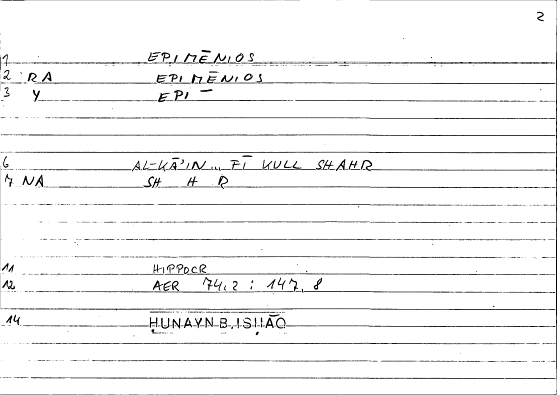 2
1 EPIMĒNIOS
2 RA EPIMĒNIOS
3 Y EPI —
6 AL-KĀ'IN... FĪ KULL SHAHR
7 NA SH H R
11 HIPPOCR
12 AER 74.2 : 147, 8
14 ḤUNAYN B. ISḤĀQ